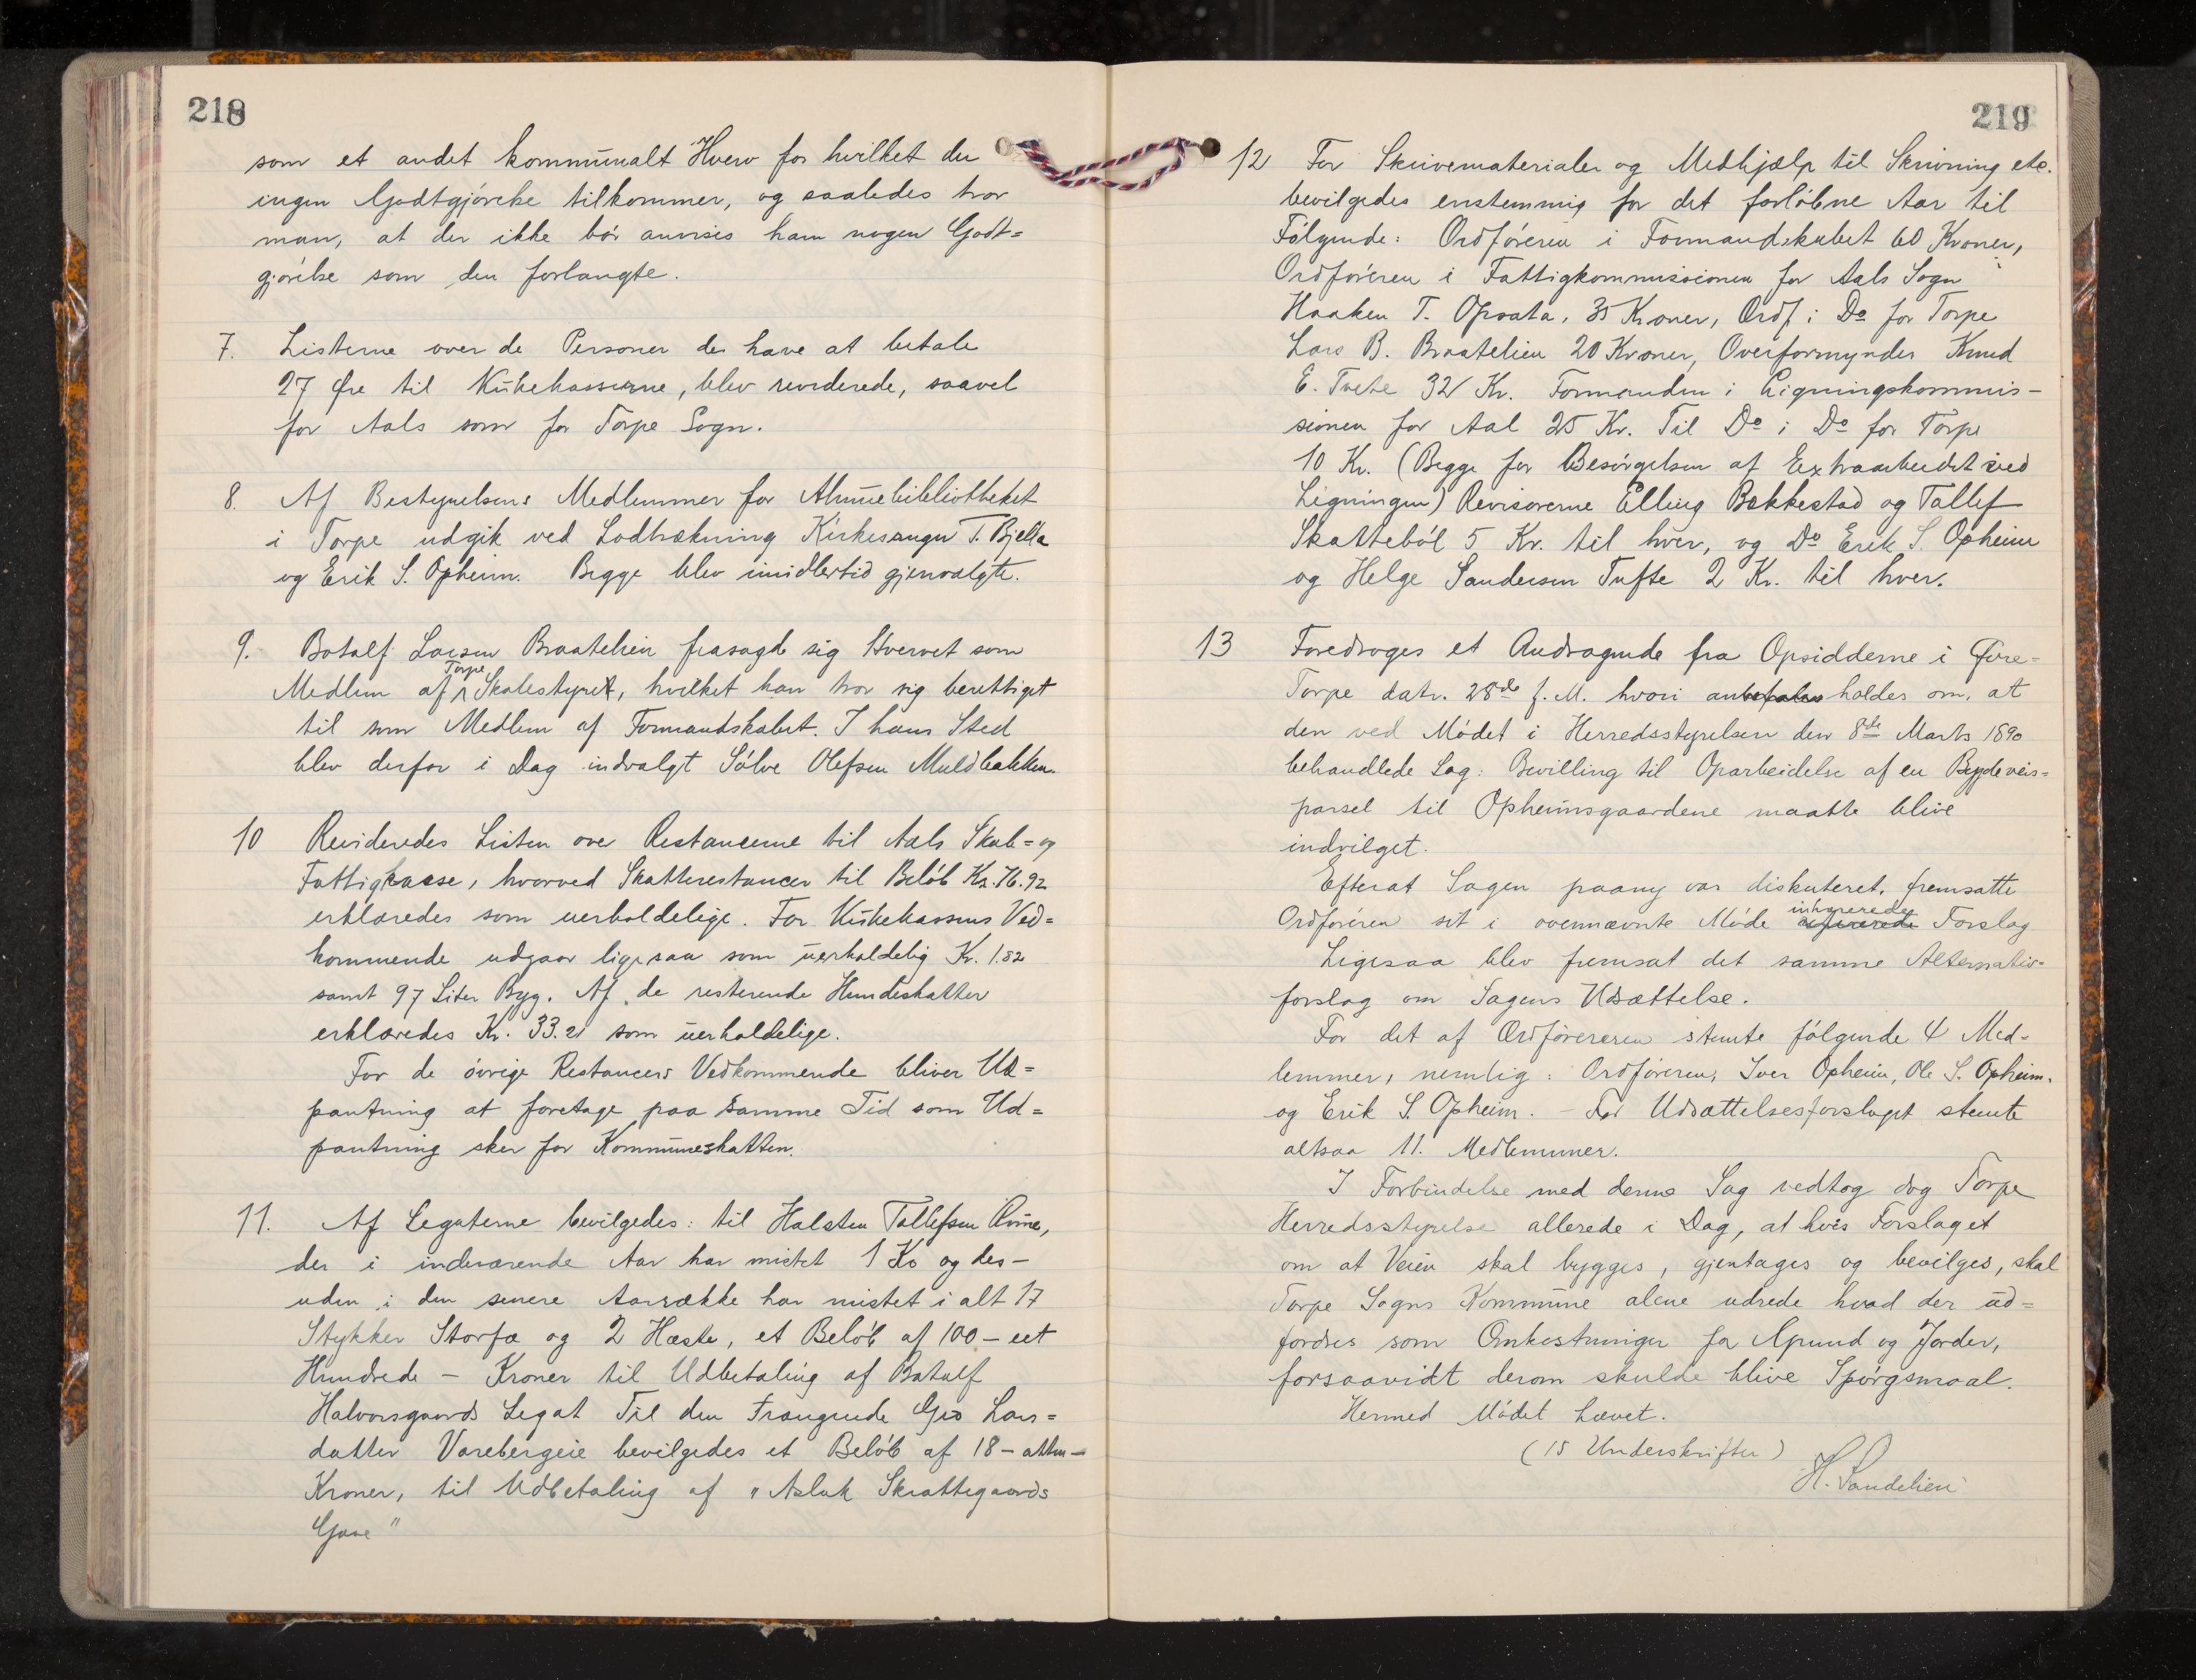 218
som et andet kommunalt Hverv for hvilket der
ingen Godtgjørelse tilkommer, og saaledes tror
man, at der ikke bør anvises ham nogen Godt=
gjørelse som den forlangte.
7. Listerne over de Personer der have at betale
27 Øre til Kirkekasserne, blev reviderede, saavel
for Aals som for Torpe Sogn.
8. Af Bestyrelsens Medlemmer for Almuebibliotheket
i Torpe udgik ved Lodtrækning Kirkesanger T. Bjella
og Erik S. Opheim. Begge blev imidlertid gjenvalgte.
9. Botolf Larsen Braatelien frasagde sig Hvervet som
Medlem af Torpe Skolestyret, hvilket han tror sig berettiget
til som Medlem af Formandskabet. I hans Sted
blev derfor i Dag indvalgt Sølve Olefsen Muldbakken.
10 Revideredes Listen over Restancerne til Aals Skole= og
Fattigkasse, hvorved Skatterestancer til Beløb Kr. 76.92
erklæredes som uerholdelige. For Kirkekassens Ved=
kommende udgaar ligesaa som uerholdelig Kr. 1.82
samt 97 Liter Byg. Af de resterende Hundeskatter
erklæredes Kr. 33.21 som uerholdelige.
For de øvrige Restancers Vedkommende bliver Ud=
pantning at foretage paa samme Tid som Ud=
pantning sker for Kommuneskatten.
11. Af Legaterne bevilgedes: til Halsten Tollefsen
der i indeværende Aar har mistet 1 Ko og des-
uden i den senere Aarrække har mistet i alt 17
Stykker Storfæ og 2 Heste, et Beløb af 100 - eet
Hundrede - Kroner til Udbetaling af Botolf
Halvorsgaards Legat Til den Trængende Gro Lars=
datter Varebergeie bevilgedes et Beløb af 18 - atten -
Kroner, til Udbetaling af "Aslak Skrattegaards
Gave"
219
12 For Skrivematerialer og Medhjælp til Skrivning etc.
bevilgedes enstemmig for det forløbne Aar til
Følgende: Ordføreren i Formandskabet 60 Kroner,
Ordføreren i Fattigkommissionen for Aals Sogn
Haaken T. Opsata, 35 Kroner, Ordf i Do for Torpe
Lars B. Braatelien 20 Kroner, Overformynder Knud
E. Tvete 32 Kr. Formanden i Ligningskommis-
sionen for Aal 25 Kr. Til Do i Do for Torpe
10 Kr. (Begge for Besørgelsen af Extraarbeidet ved
Ligningen) Revisorerne Elling Bækkestad og Tollef
Skattebøl 5 Kr. til hver, og Do Erik S. Opheim
og Helge Sandersen Tufte 2 Kr. til hver.
13 Foredroges et Andragende fra Opsidderne i Øvre=
Torpe datr. 28de f. M. hvori anbefales holdes om, at
den ved Mødet i Herredsstyrelsen den 8de Marts 1890
behandlede Sag: Bevilling til Oparbeidelse af en Bygdeveis=
parsel til Opheimsgaardene maatte blive
indvilget.
Efterat Sagen paany var diskuteret, fremsatte
Ordføreren sit i ovennævnte Møde refererede inhærerede Forslag
Ligesaa blev fremsat det samme Alternativ=
forslag om Sagens Udsættelse.
For det af Ordføreren stemte følgende 4 Med-
lemmer, nemlig: Ordføreren, Iver Opheim, Ole S. Opheim.
og Erik S. Opheim. - For Udsættelsesforslaget stemte
altsaa 11. Medlemmer.
I Forbindelse med denne Sag vedtog dog Torpe
Herredsstyrelse allerede i Dag, at hvis Forslaget
om at Veien skal bygges, gjentages og bevilges, skal
Torpe Sogns Kommune alene udrede hvad der ud=
fordres som Omkostninger for Grund og Jorder,
forsaavidt derom skulde blive Spørgsmaal.
Hermed Mødet hævet.
(15 Underskrifter)
H. Sandelien